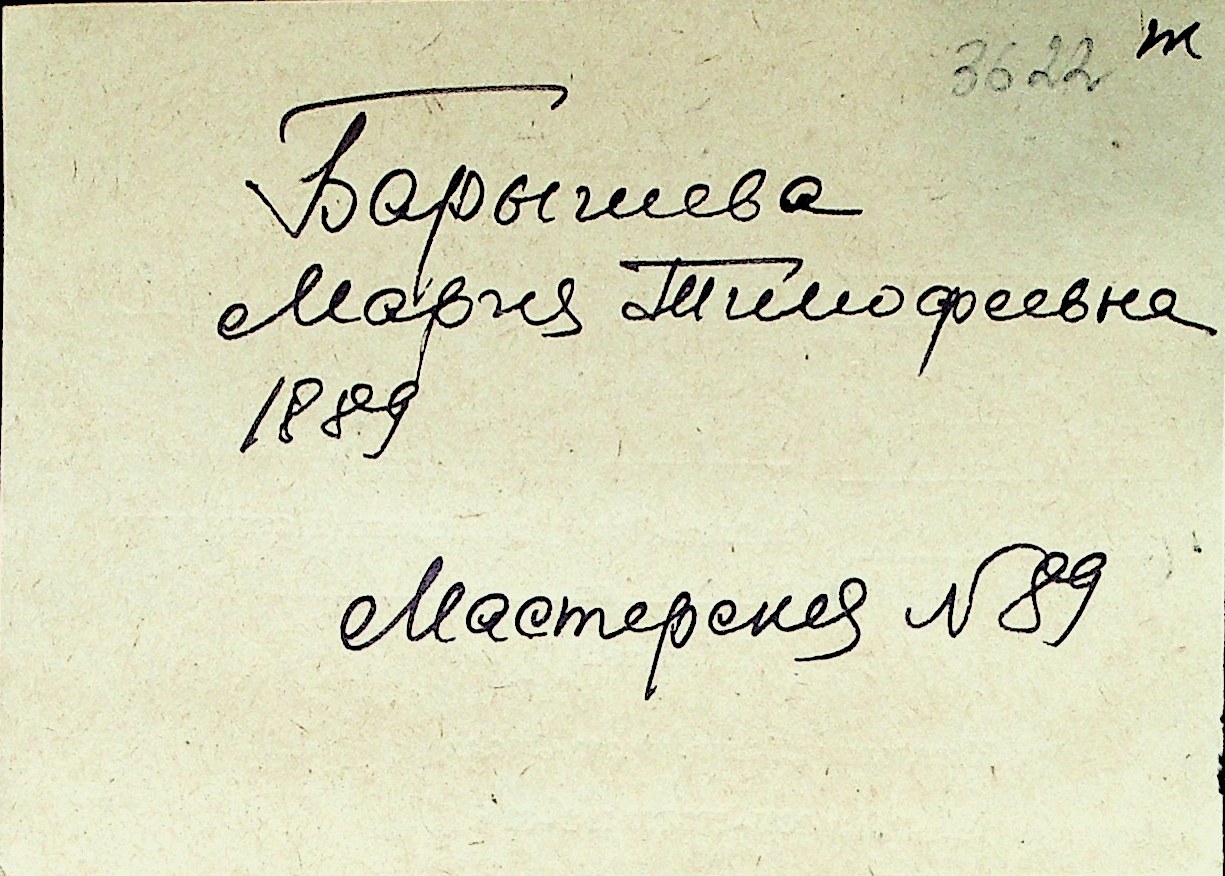 3622 ж
Барышева
Мария Тимофеевна
1889
Мастерская N 89